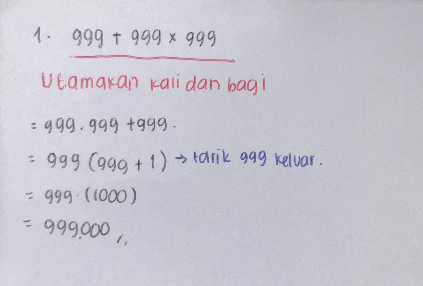 1. 999 + 999 x 999
Utamakan kali dan bagi
= 999.999 +999.
= 999 (999 + 1) → tarik 999 keluar.
= 999. (1000)
= 999.000 //